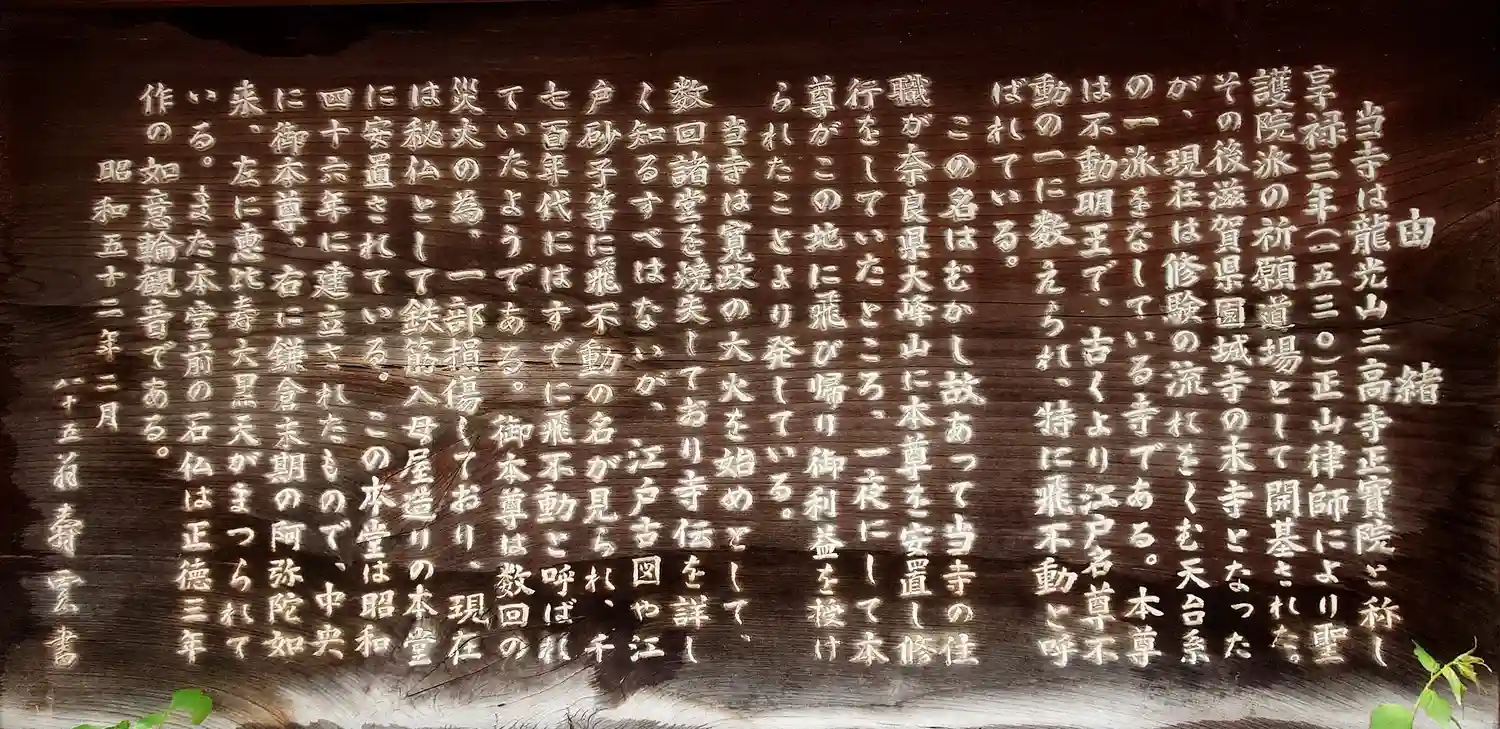 由緒
当寺は龍光山三高寺正寳院と称し
享禄三年(一五三〇)正山律師により聖
護院派の祈願道場として開基された。
その後滋賀県園城寺の末寺となった
が、現在は修験の流れをくむ天台系
の一派をなしている寺である。本尊
は不動明王で、古くより江戸名尊不
動の一に数えられ、特に飛不動と呼
ばれている。
この名はむかし故あって当寺の住
職が奈良県大峰山に本尊を安置し修
行をしていたところ、一夜にして本
尊がこの地に飛び帰り御利益を授け
られたことより発している。
当寺は寛政の大火を始めとして、
数回諸堂を焼失しており寺伝を詳し
く知るすべはないが、江戸古図や江
戸砂子等に飛不動の名が見られ、千
七百年代にはすでに飛不動と呼ばれ
ていたようである。御本尊は数回の
災火の為、一部損傷しており、現在
は秘仏として鉄筋入母屋造りの本堂
に安置されている。この本堂は昭和
四十六年に建立されたもので、中央
に御本尊、右に鎌倉末期の阿弥陀如
来、左に恵比寿六黒天がまつられて
いる。また本堂前の石仏は正徳三年
作の如意輪観音である。
昭和五十二年二月
八十五翁 壽 雲 書